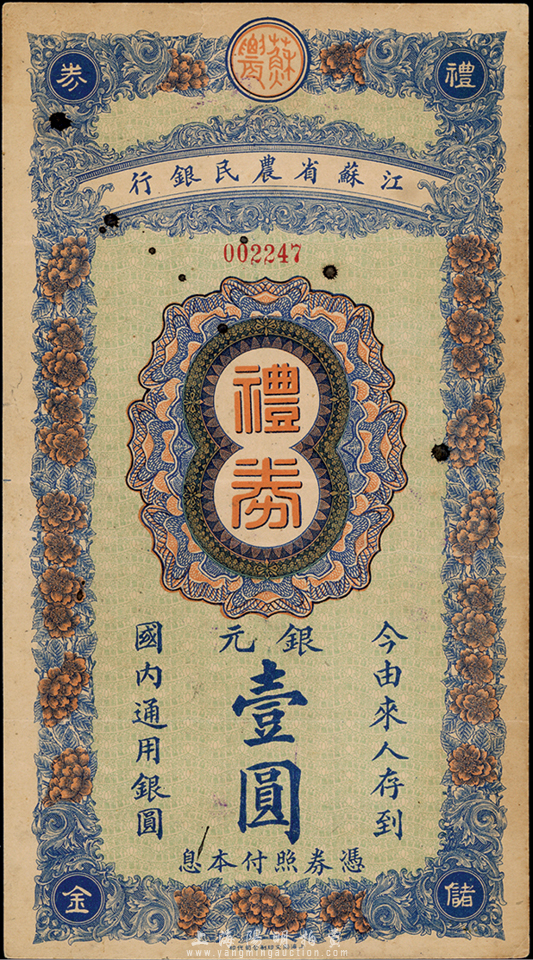 蘇農
禮券
江蘇省農民銀行
002247
禮券
今由來人存到
銀元
壹圓
國内通用銀圓
憑券照付本息
儲金
www.yangmingauction.com